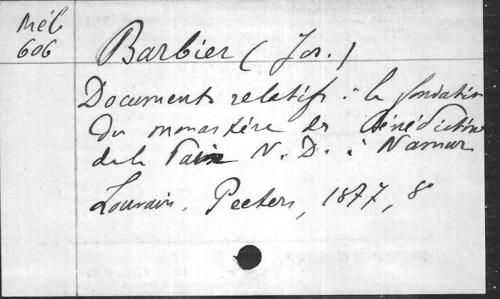 Mél
606
Barbier (Jos.)
Documents relatifs à la fondation
du monastère des Bénédictines
de la Paix N. D. à Namur
Louvain, Peeters, 1877, 8°